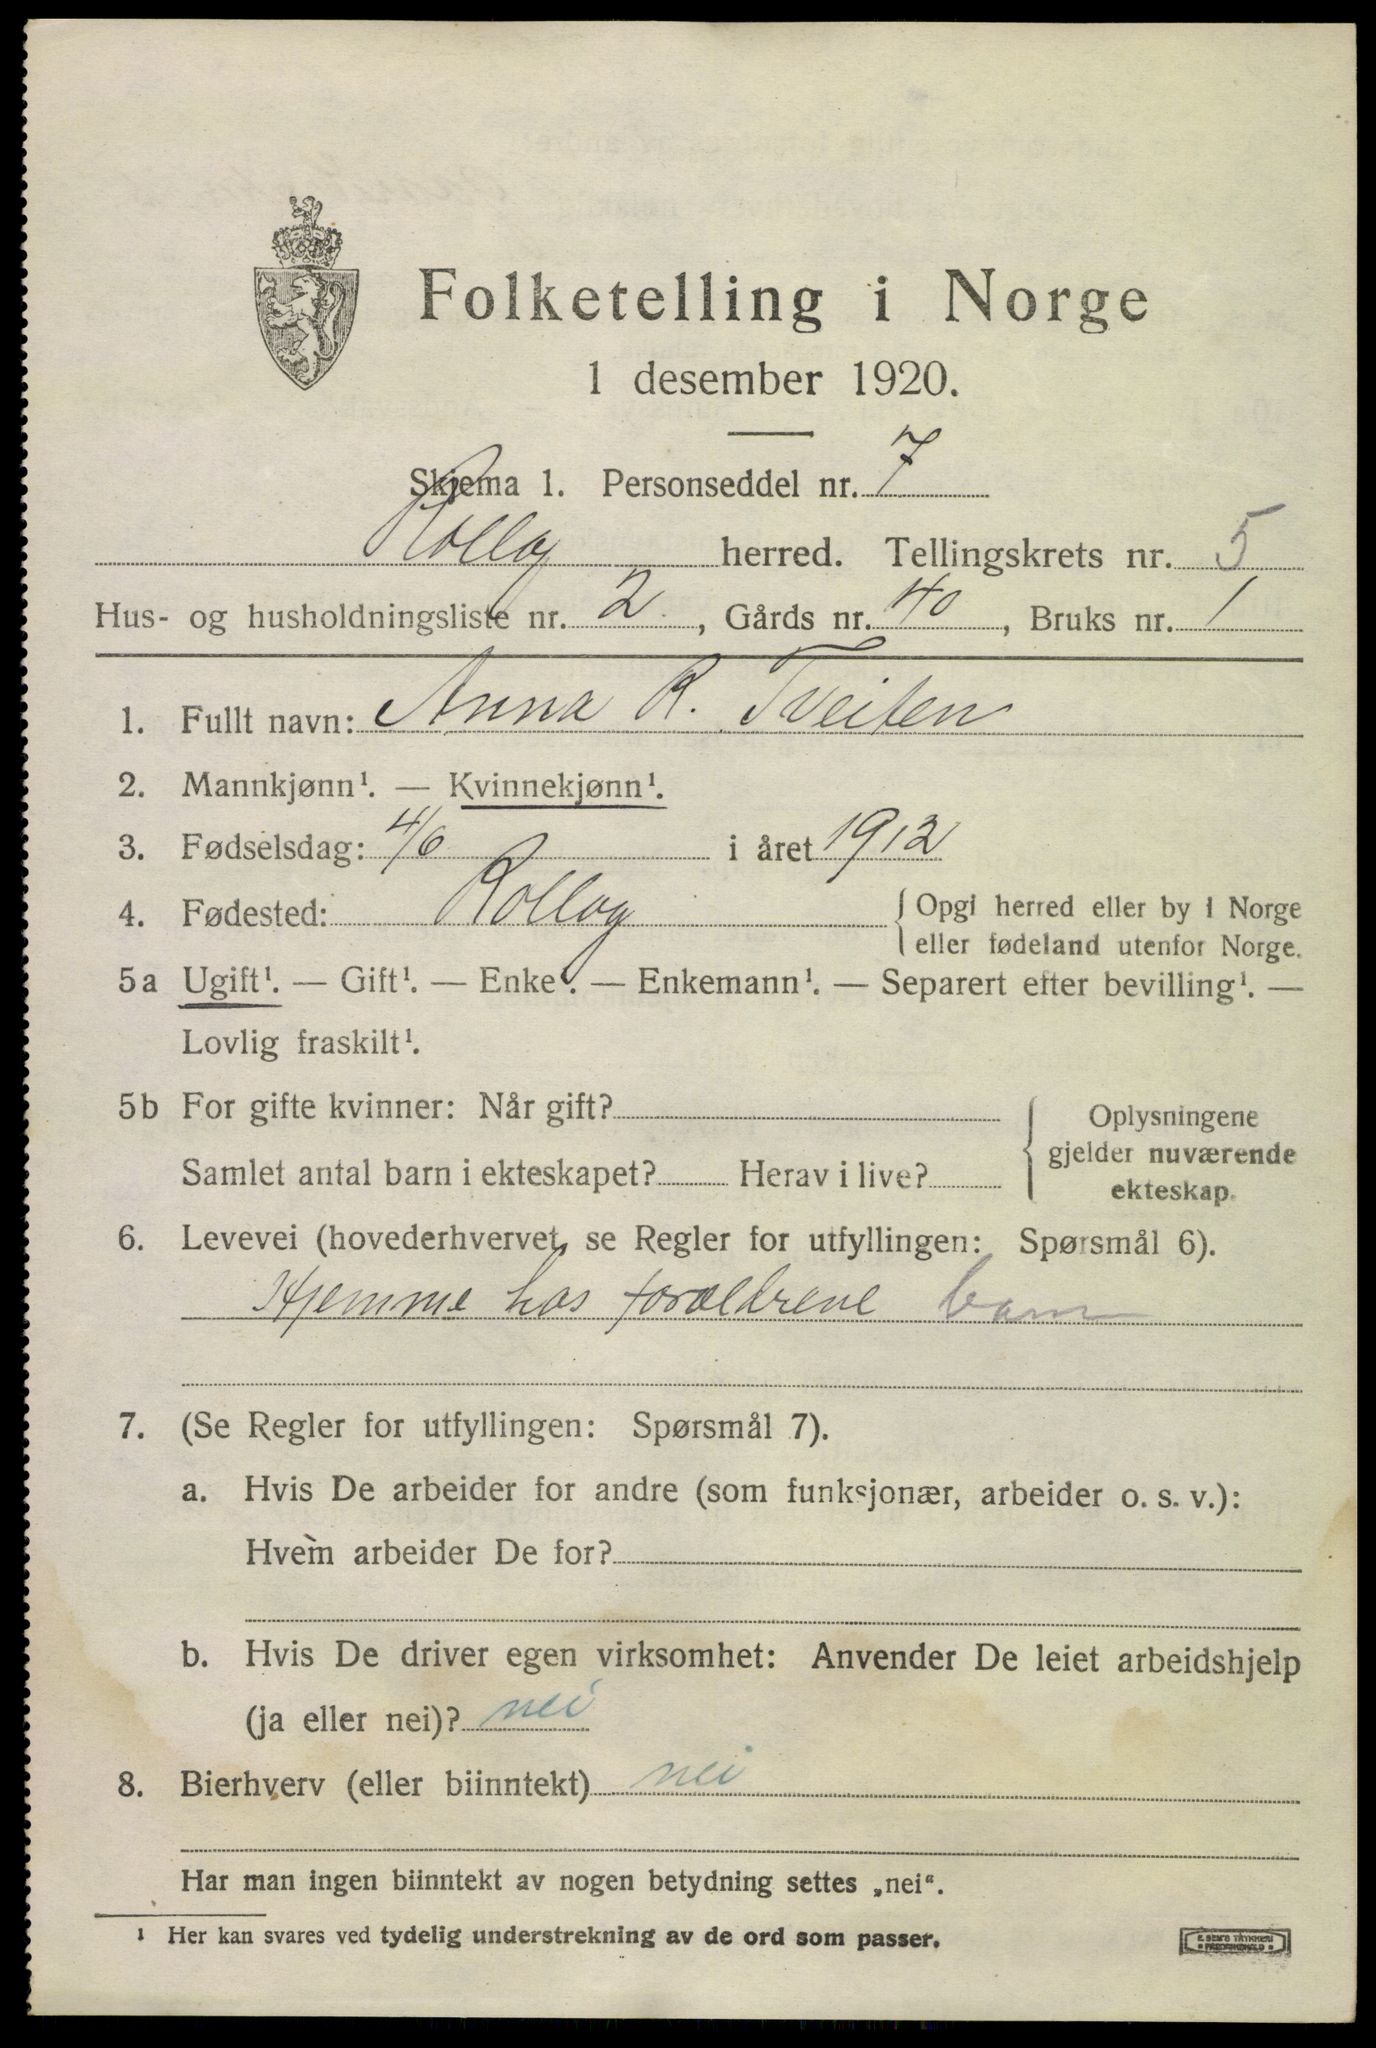 Folketelling i Norge
1 desember 1920.
Skjema 1. Personseddel nr. 7
Rollag herred. Tellingskrets nr. 5
Hus- og husholdningsliste nr. 2, Gårds nr. 40, Bruks nr. 1
1. Fullt navn: Anna R. Tveiten
2. Mannkjønn¹. — Kvinnekjønn¹.
3. Fødselsdag: 4/6 i året 1912
4. Fødested: Rollag { Opgi herred eller by i Norge
eller fødeland utenfor Norge.
5a Ugift¹. — Gift¹. — Enke¹. — Enkemann¹. — Separert efter bevilling¹. —
Lovlig fraskilt¹.
5b For gifte kvinner: Når gift? { Oplysningene
gjelder nuværende
Samlet antal barn i ekteskapet? Herav i live?
ekteskap.
6. Levevei (hovederhvervet, se Regler for utfyllingen: Spørsmål 6).
Hjemme hos forældrene barn
7. (Se Regler for utfyllingen: Spørsmål 7).
a. Hvis De arbeider for andre (som funksjonær, arbeider o. s. v.):
Hvem arbeider De for?
b. Hvis De driver egen virksomhet: Anvender De leiet arbeidshjelp
(ja eller nei)? nei
8. Bierhverv (eller biinntekt) nei
Har man ingen biinntekt av nogen betydning settes „nei“.
¹ Her kan svares ved tydelig understrekning av de ord som passer.
E. SEM'S TRYKKERI
FREDRIKSHALD